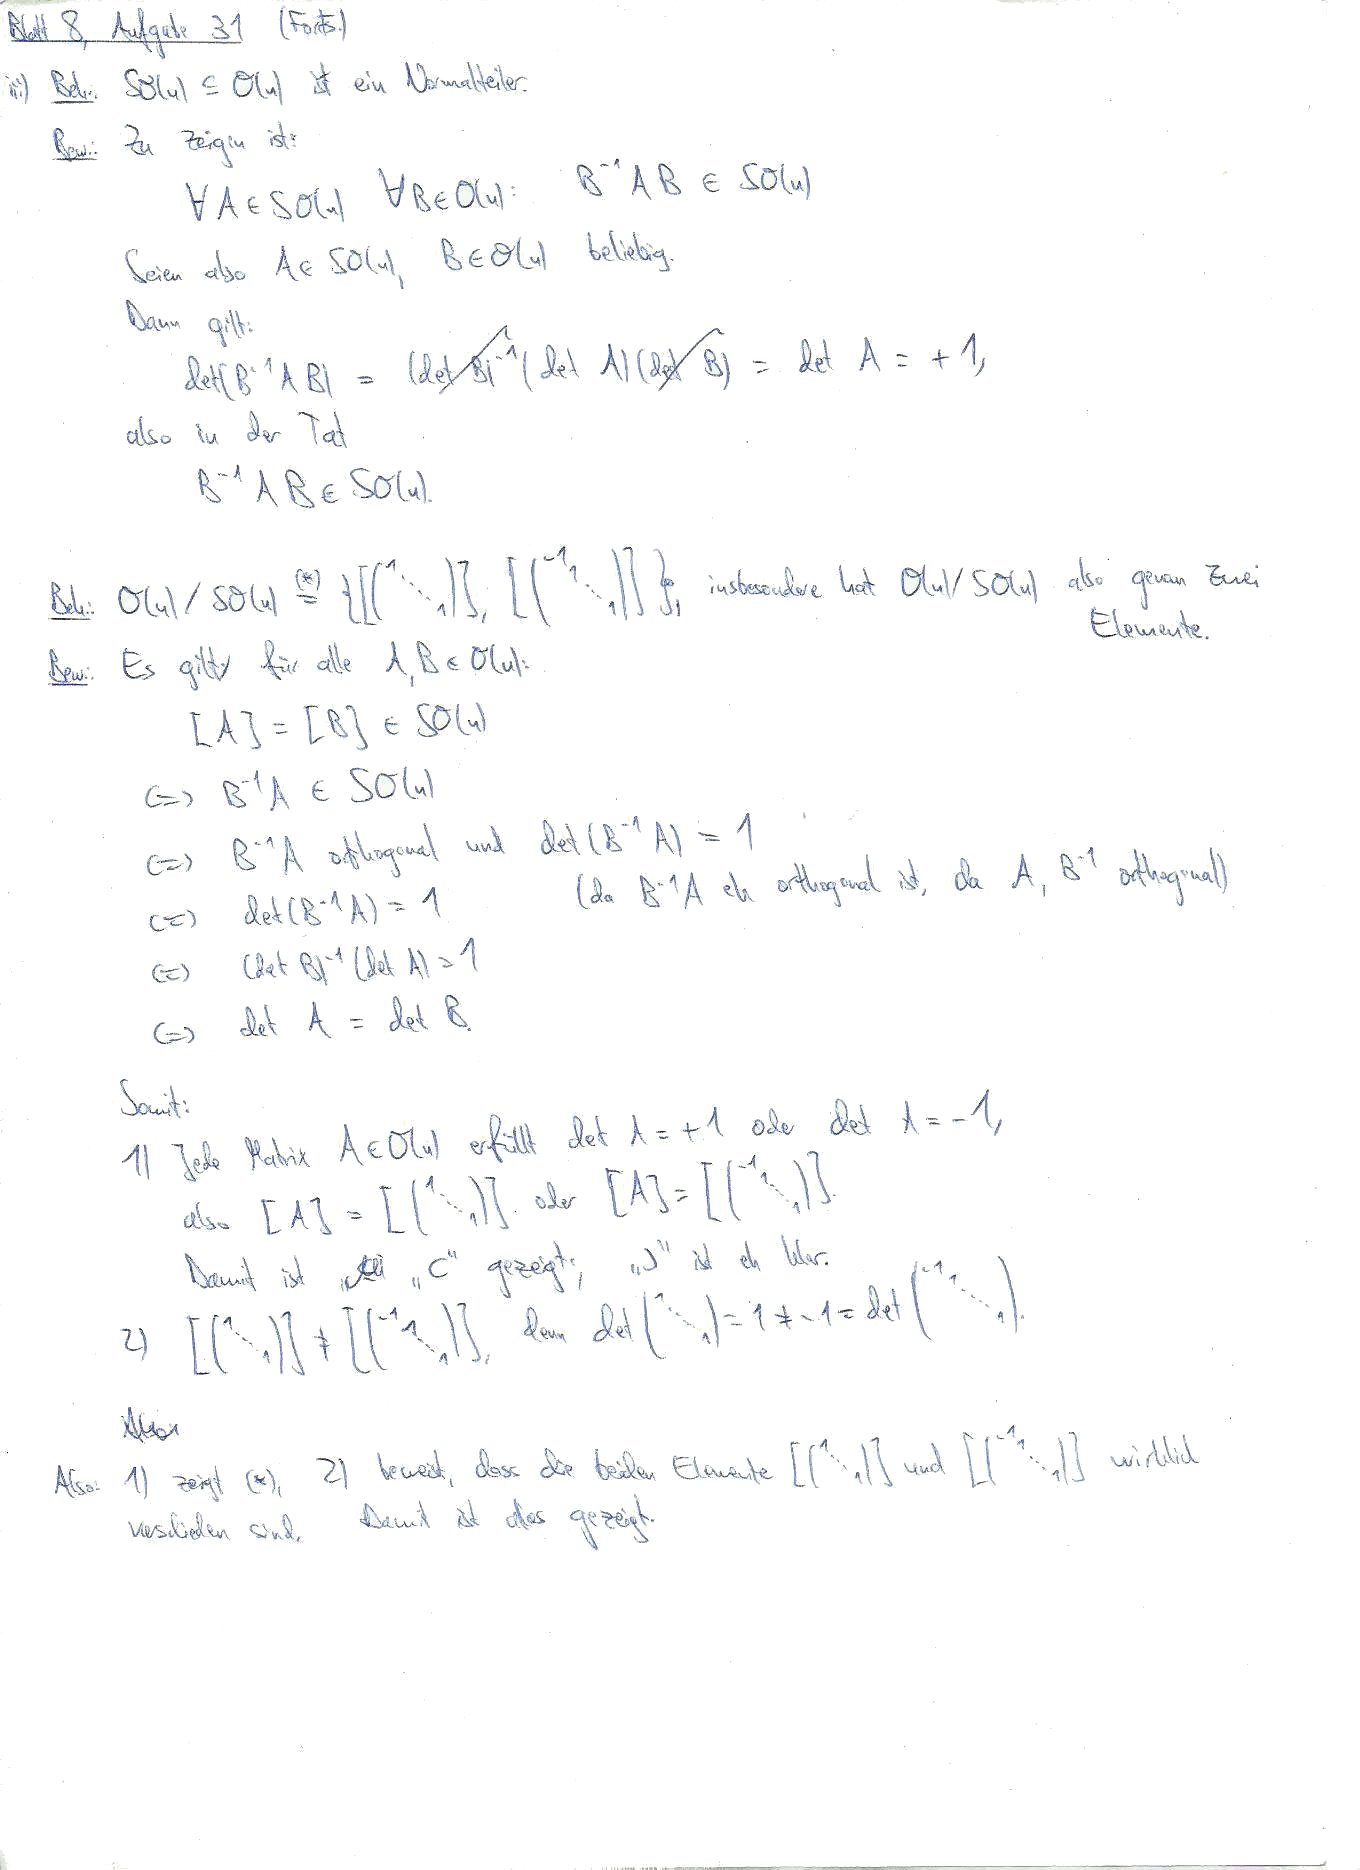 Blatt 8, Aufgabe 31 (Forts.)
ii) Beh.: SO(n) ⊆ O(n) ist ein Normalteiler.
Bew.: Zu zeigen ist:
∀ A ∈ SO(n) ∀ B ∈ O(n): B⁻¹ A B ∈ SO(n)
Seien also A ∈ SO(n), B ∈ O(n) beliebig.
Dann gilt:
det(B⁻¹ A B) = (det B)⁻¹ (det A) (det B) = det A = +1,
also in der Tat
B⁻¹ A B ∈ SO(n).
Beh.: O(n) / SO(n) (*)= {[(1 ⋱ 1)], [(-1 1 ⋱ 1)]}, insbesondere hat O(n)/SO(n) also genau zwei
Elemente.
Bew.: Es gilt für alle A, B ∈ O(n):
[A] = [B] ∈ SO(n)
⟺ B⁻¹A ∈ SO(n)
⟺ B⁻¹A orthogonal und det(B⁻¹A) = 1
⟺ det(B⁻¹A) = 1 (da B⁻¹A eh orthogonal ist, da A, B⁻¹ orthogonal)
⟺ (det B)⁻¹ (det A) = 1
⟺ det A = det B.
Somit:
1) Jede Matrix A ∈ O(n) erfüllt det A = +1 oder det A = -1,
also [A] = [(1 ⋱ 1)] oder [A] = [(-1 1 ⋱ 1)].
Damit ist „⊂" gezeigt; „⊃" ist eh klar.
2) [(1 ⋱ 1)] ≠ [(-1 1 ⋱ 1)], denn det(1 ⋱ 1) = 1 ≠ -1 = det(-1 1 ⋱ 1).
Also: 1) zeigt (*), 2) beweist, dass die beiden Elemente [(1 ⋱ 1)] und [(-1 1 ⋱ 1)] wirklich
verschieden sind. Damit ist alles gezeigt.